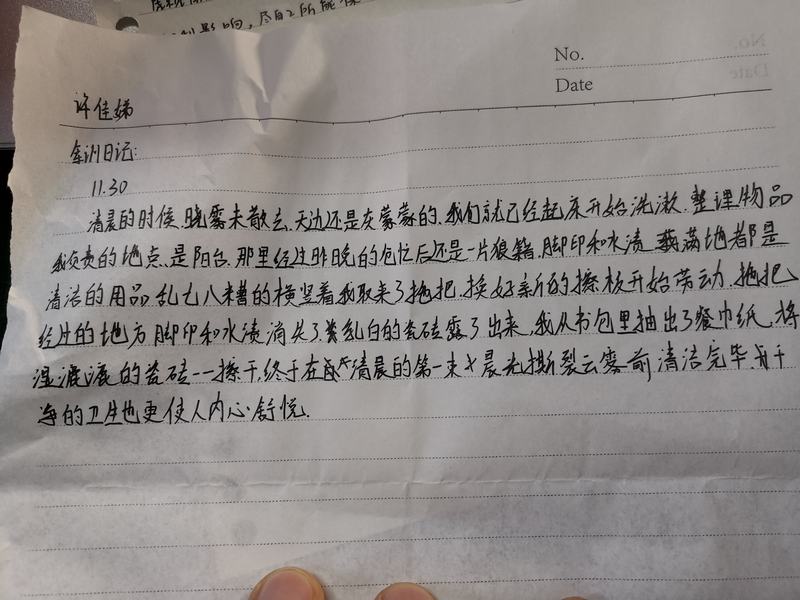 影响,尽自己所能保
No.
Date
许佳娣
训日记:
11.30
清晨的时候,晓雾未散去,天边还是灰蒙蒙的,我们就已经起床开始洗漱,整理物品
我负责的地点是阳台,那里经过昨晚的匆忙后还是一片狼籍,脚印和水渍 满地都是
清洁的用品乱七八糟的横竖着我取来了拖把,换好新的擦板开始劳动,拖把
经过的地方脚印和水渍消失了,乳白的瓷砖露了出来,我从书包里抽出了餐巾纸,将
湿漉漉的瓷砖一一擦干,终于在清晨的第一束晨光撕裂云雾前清洁完毕,干
净的卫生也更使人内心舒悦.
No.
Date